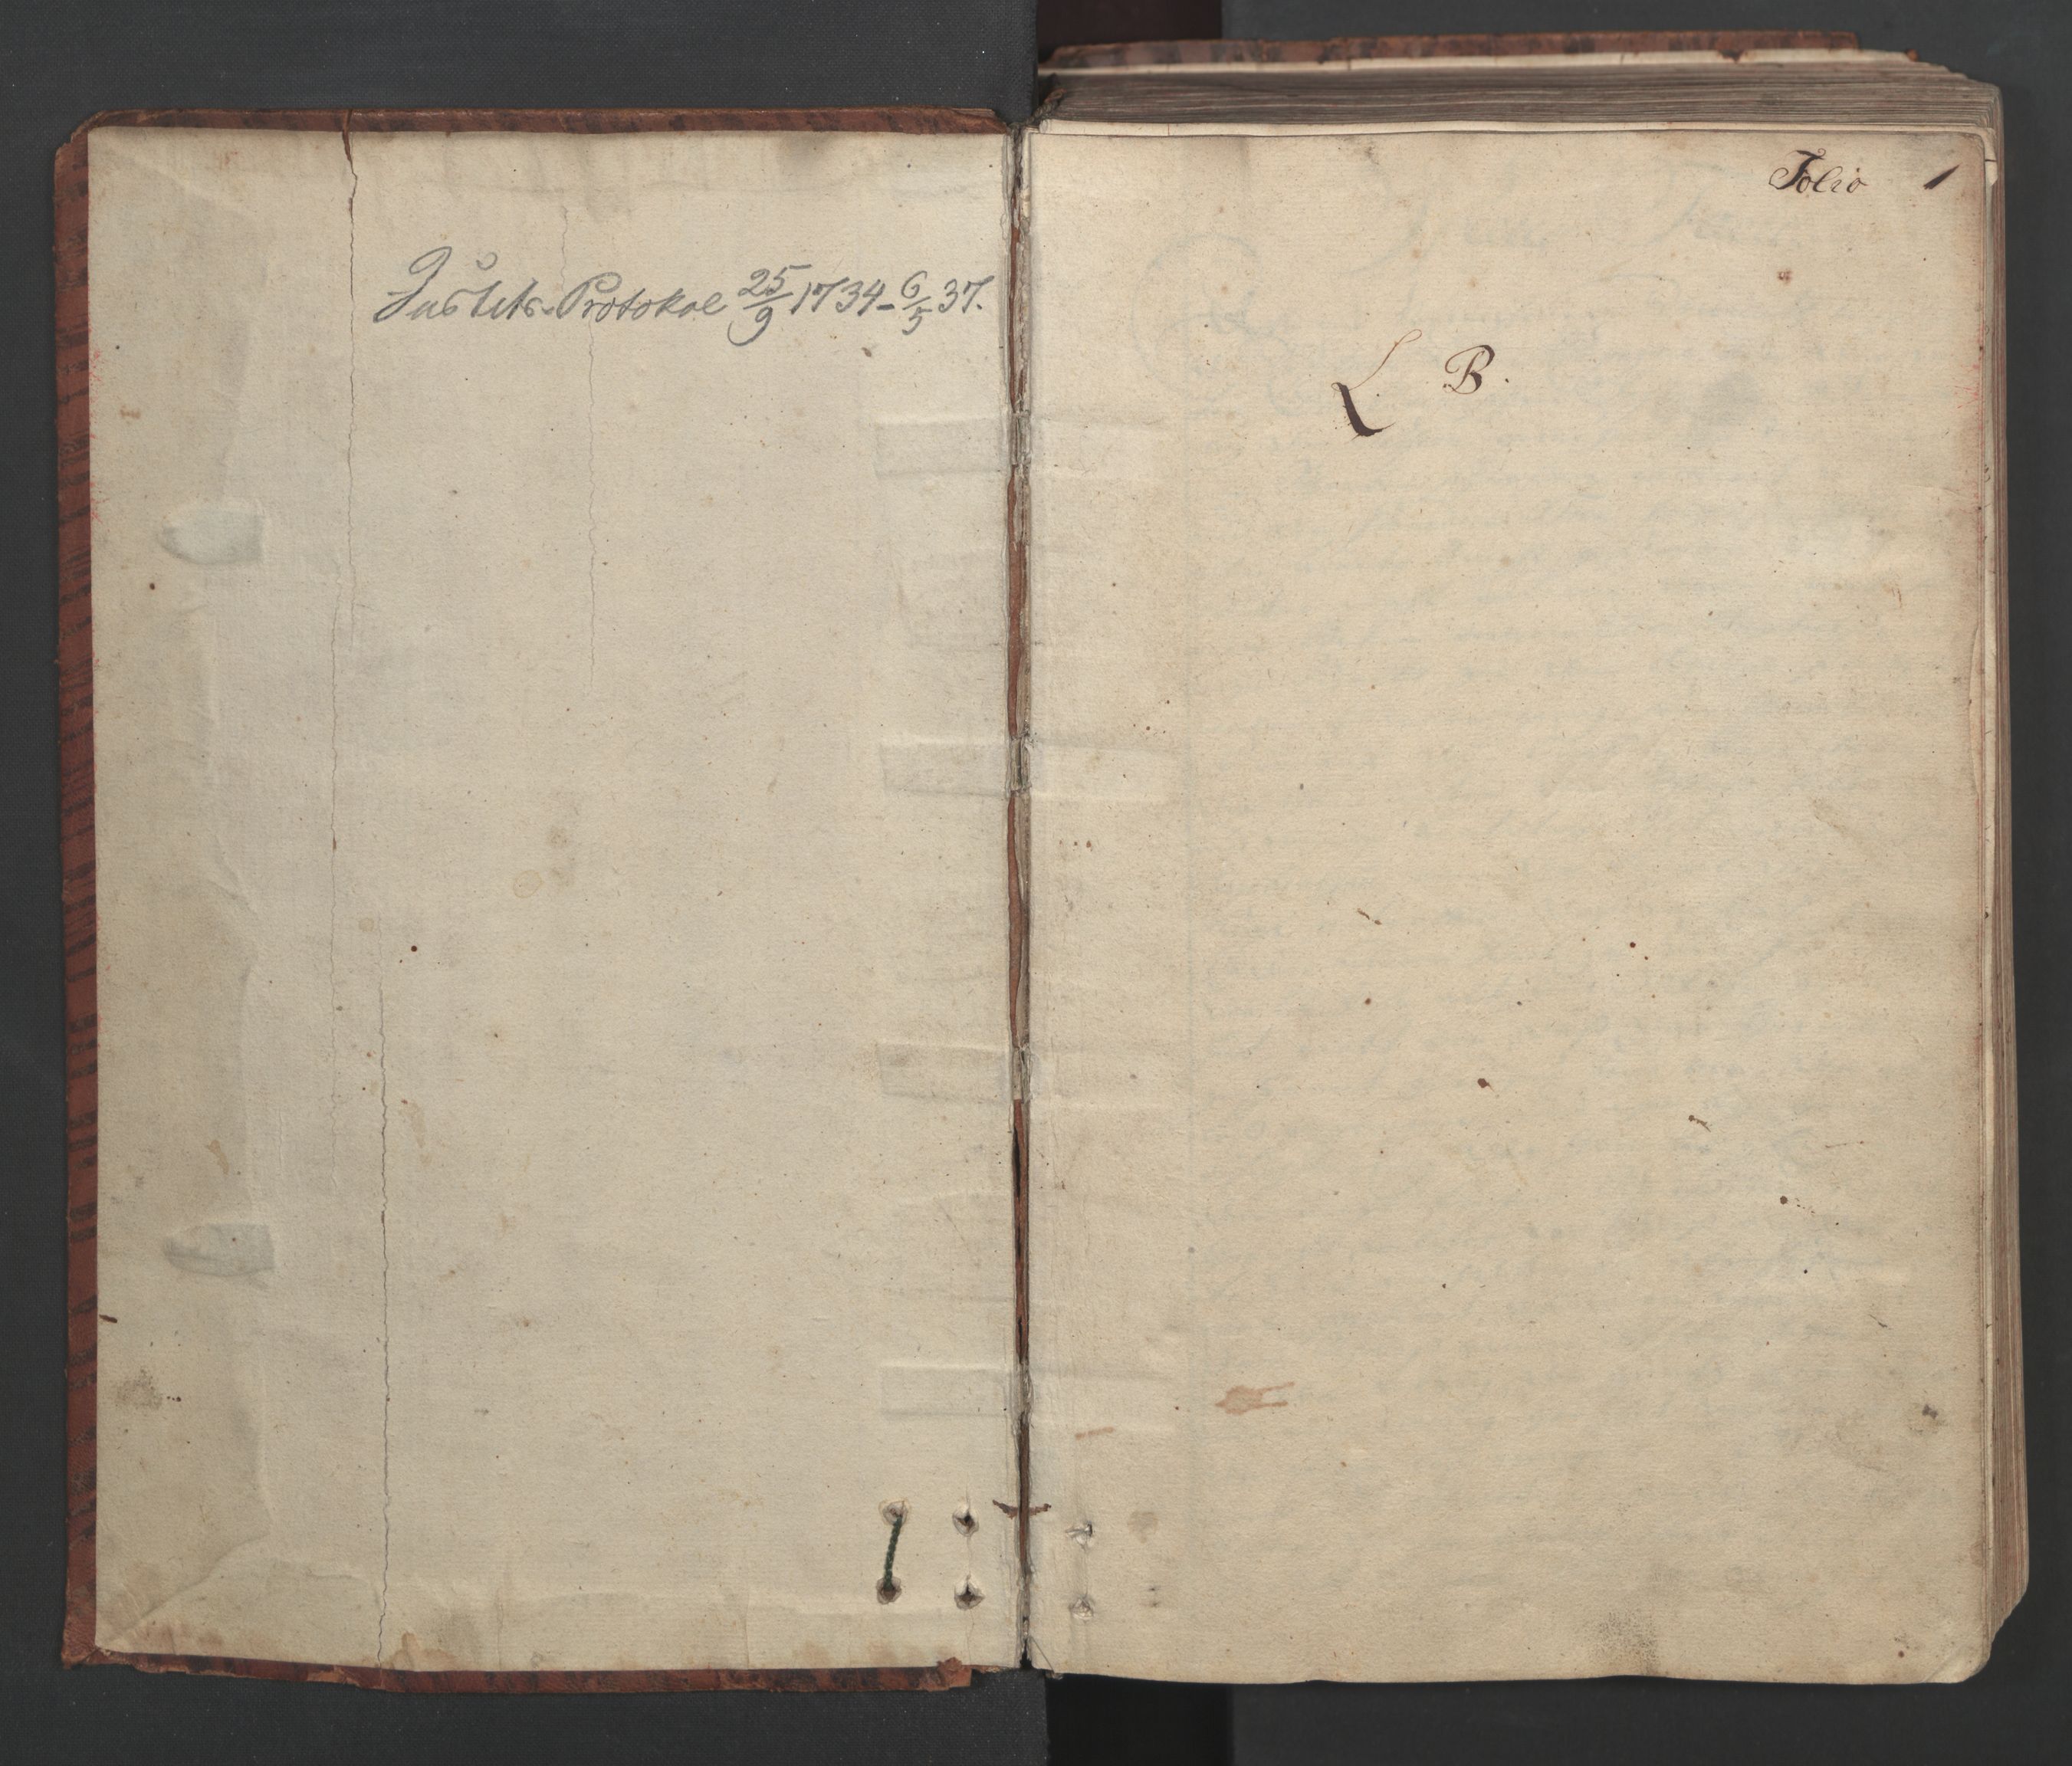 Justits-Protokol 25/9 1734 - 6/5 37.
Folio 1
L B.